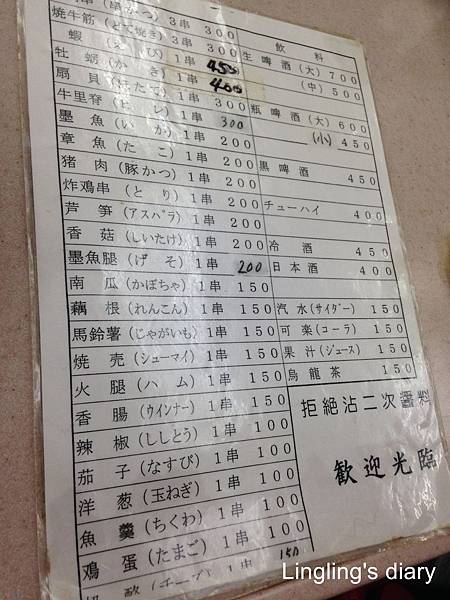 (串かつ) 3串 300
焼牛筋 (どて焼き) 3串 300
蝦 (えび) 1串 450
牡蛎 (かき) 1串 400
扇貝 (ほたて) 1串 300
牛里脊 (ヒレ) 1串 300
墨魚 (いか) 1串 200
章魚 (たこ) 1串 200
猪肉 (豚かつ) 1串 200
炸鶏串 (とり) 1串 200
芦笋 (アスパラ) 1串 200
香菇 (しいたけ) 1串 200
墨魚腿 (げそ) 1串 200
南瓜 (かぼちゃ) 1串 150
藕根 (れんこん) 1串 150
馬鈴薯 (じゃがいも) 1串 150
焼売 (シューマイ) 1串 150
火腿 (ハム) 1串 150
香腸 (ウインナー) 1串 150
辣椒 (ししとう) 1串 100
茄子 (なすび) 1串 100
洋葱 (玉ねぎ) 1串 100
魚羹 (ちくわ) 1串 100
鶏蛋 (たまご) 1串 100
150
飲料
生啤酒 (大) 700
(中) 500
瓶啤酒 (大) 600
(小) 450
黒啤酒 450
チューハイ 400
冷酒 450
日本酒 400
汽水 (サイダー) 150
可楽 (コーラ) 150
果汁 (ジュース) 150
烏龍茶 150
拒絶沾二次醤料
歓迎光臨
Lingling's diary